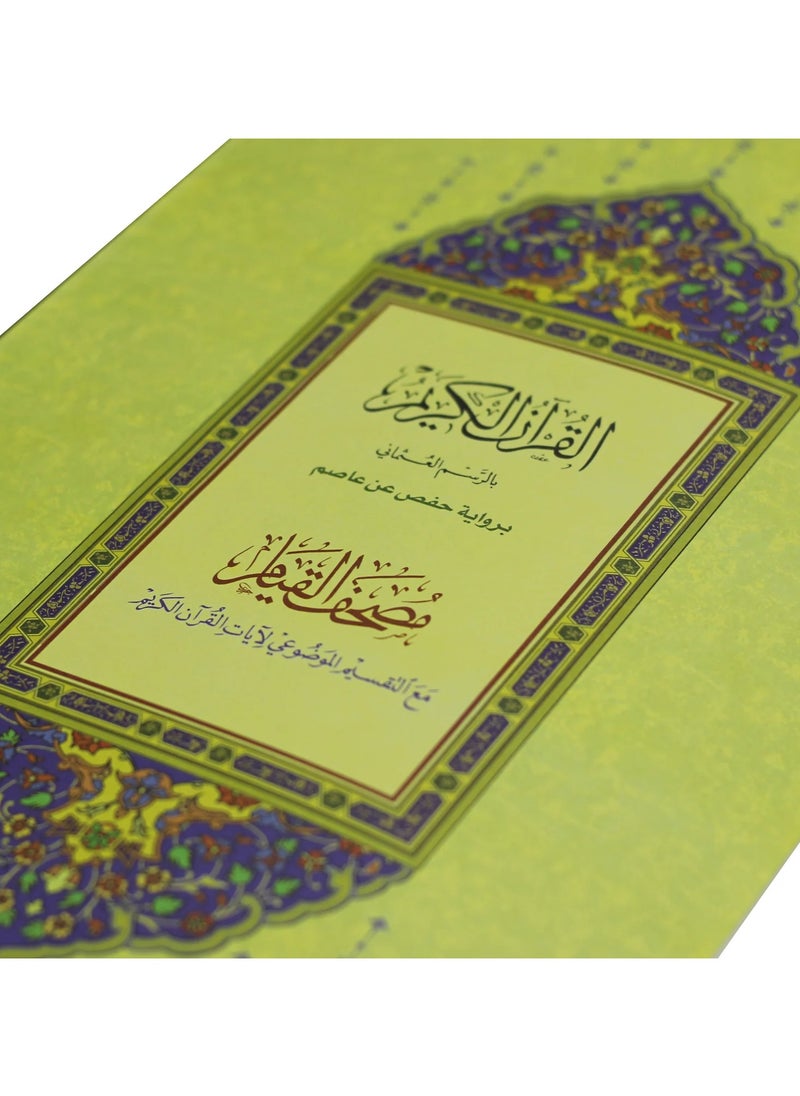 القرآن الكريم
بالرَّسْمِ العُثماني
برواية حفص عن عاصم
مصحف القيام
مَعَ التقسيم المَوضُوعي لآيات القُرآن الكَريم